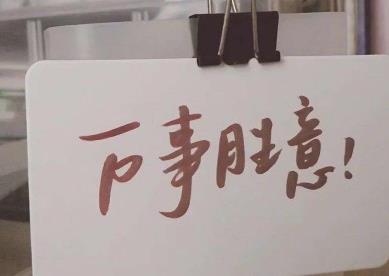 万事胜意！